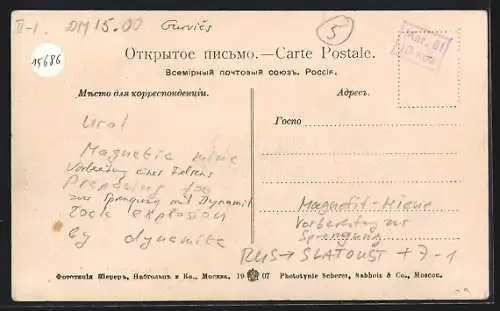 II-1. DM 15.00 Gurvičs
5
15686
Kar. 61
Открытое письмо.—Carte Postale.
Всемірный почтовый союзъ. Россія.
Мѣсто для корреспонденціи.
Адресъ.
Госпо
Ural
Magnetic mine
Vorbereitung eines Felsens
Preparing for
zur Sprengung mit Dynamit
rock explosion
by dynamite
Magnetit-Miene
Vorbereitung zur
Sprengung
RUS → SLATOUST + 7-1
Фототипія Шереръ, Набгольцъ и Ко., Москва. 19 07 Phototypie Scherer, Nabholz & Co., Moscou.